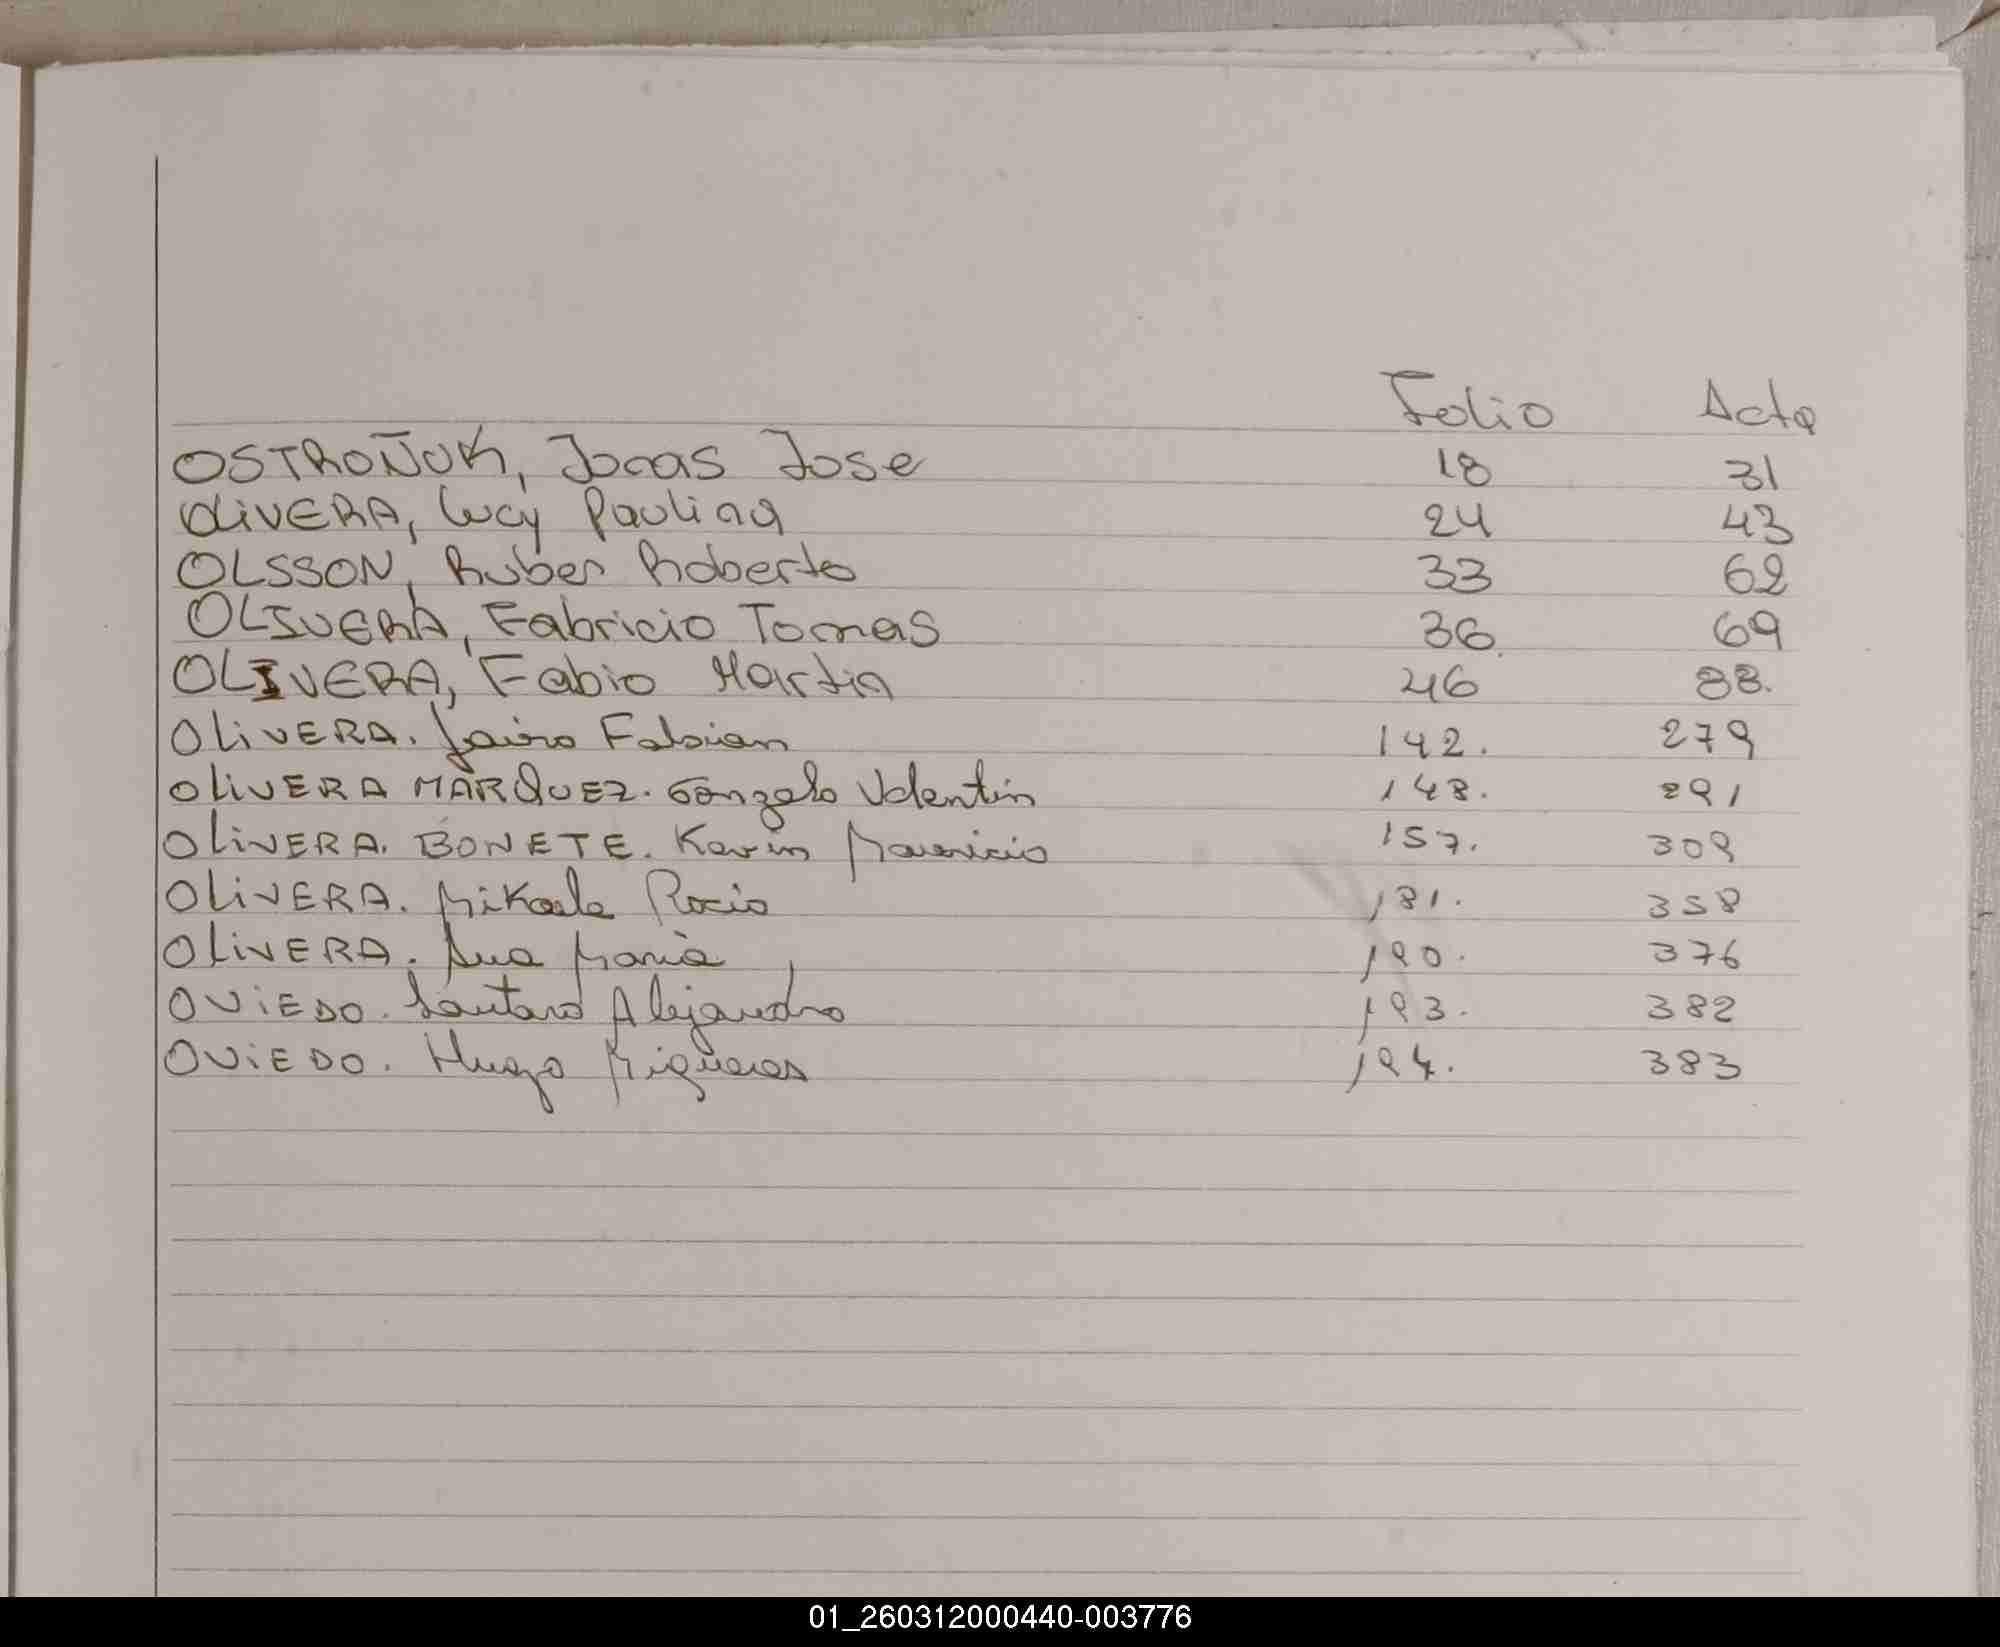 Folio Acta
OSTROÑUK, Jonas Jose 18 31
OLiVERA, Lucy Paulina 24 43
OLSSON, Ruben Roberto 33 62
OLIVERA, Fabricio Tomas 36. 69
OLIVERA, Fabio Martin 46 88.
OLiVERA. Jairo Fabian 142. 279
OLiVERA MARQUEZ. Gonzalo Valentin 148. 291
OLiVERA. BONETE. Kevin Mauricio 157. 309
OLiVERA. Mikaela Rocio 181. 358
OLiVERA. Ana Maria 190. 376
OViEDO. Lautaro Alejandro 193. 382
OViEDO. Hugo 194. 383
01_260312000440-003776